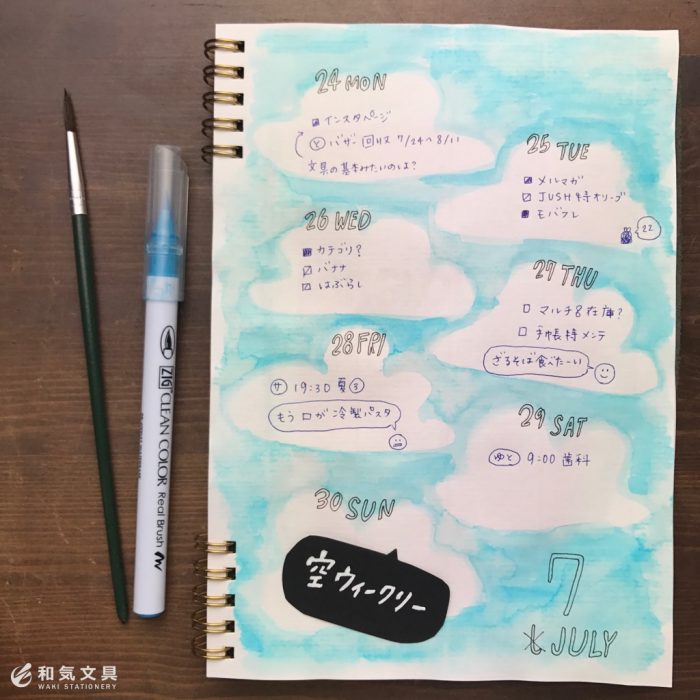 24 MON
インスタページ
と バザー 回収 7/24〜8/11
文具の基本みたいのは？
25 TUE
メルマガ
JUSH 特オリーブ
モバフレ
22
26 WED
カテゴリ？
バナナ
はぶらし
27 THU
マルチ8在庫？
手帳特メンテ
ざるそば食べたーい
28 FRI
サ 19:30 夏③
もう口が冷製パスタ
29 SAT
ゆと 9:00 歯科
30 SUN
空ウィークリー
7
JULY
ZIG CLEAN COLOR Real Brush
和気文具
WAKI STATIONERY